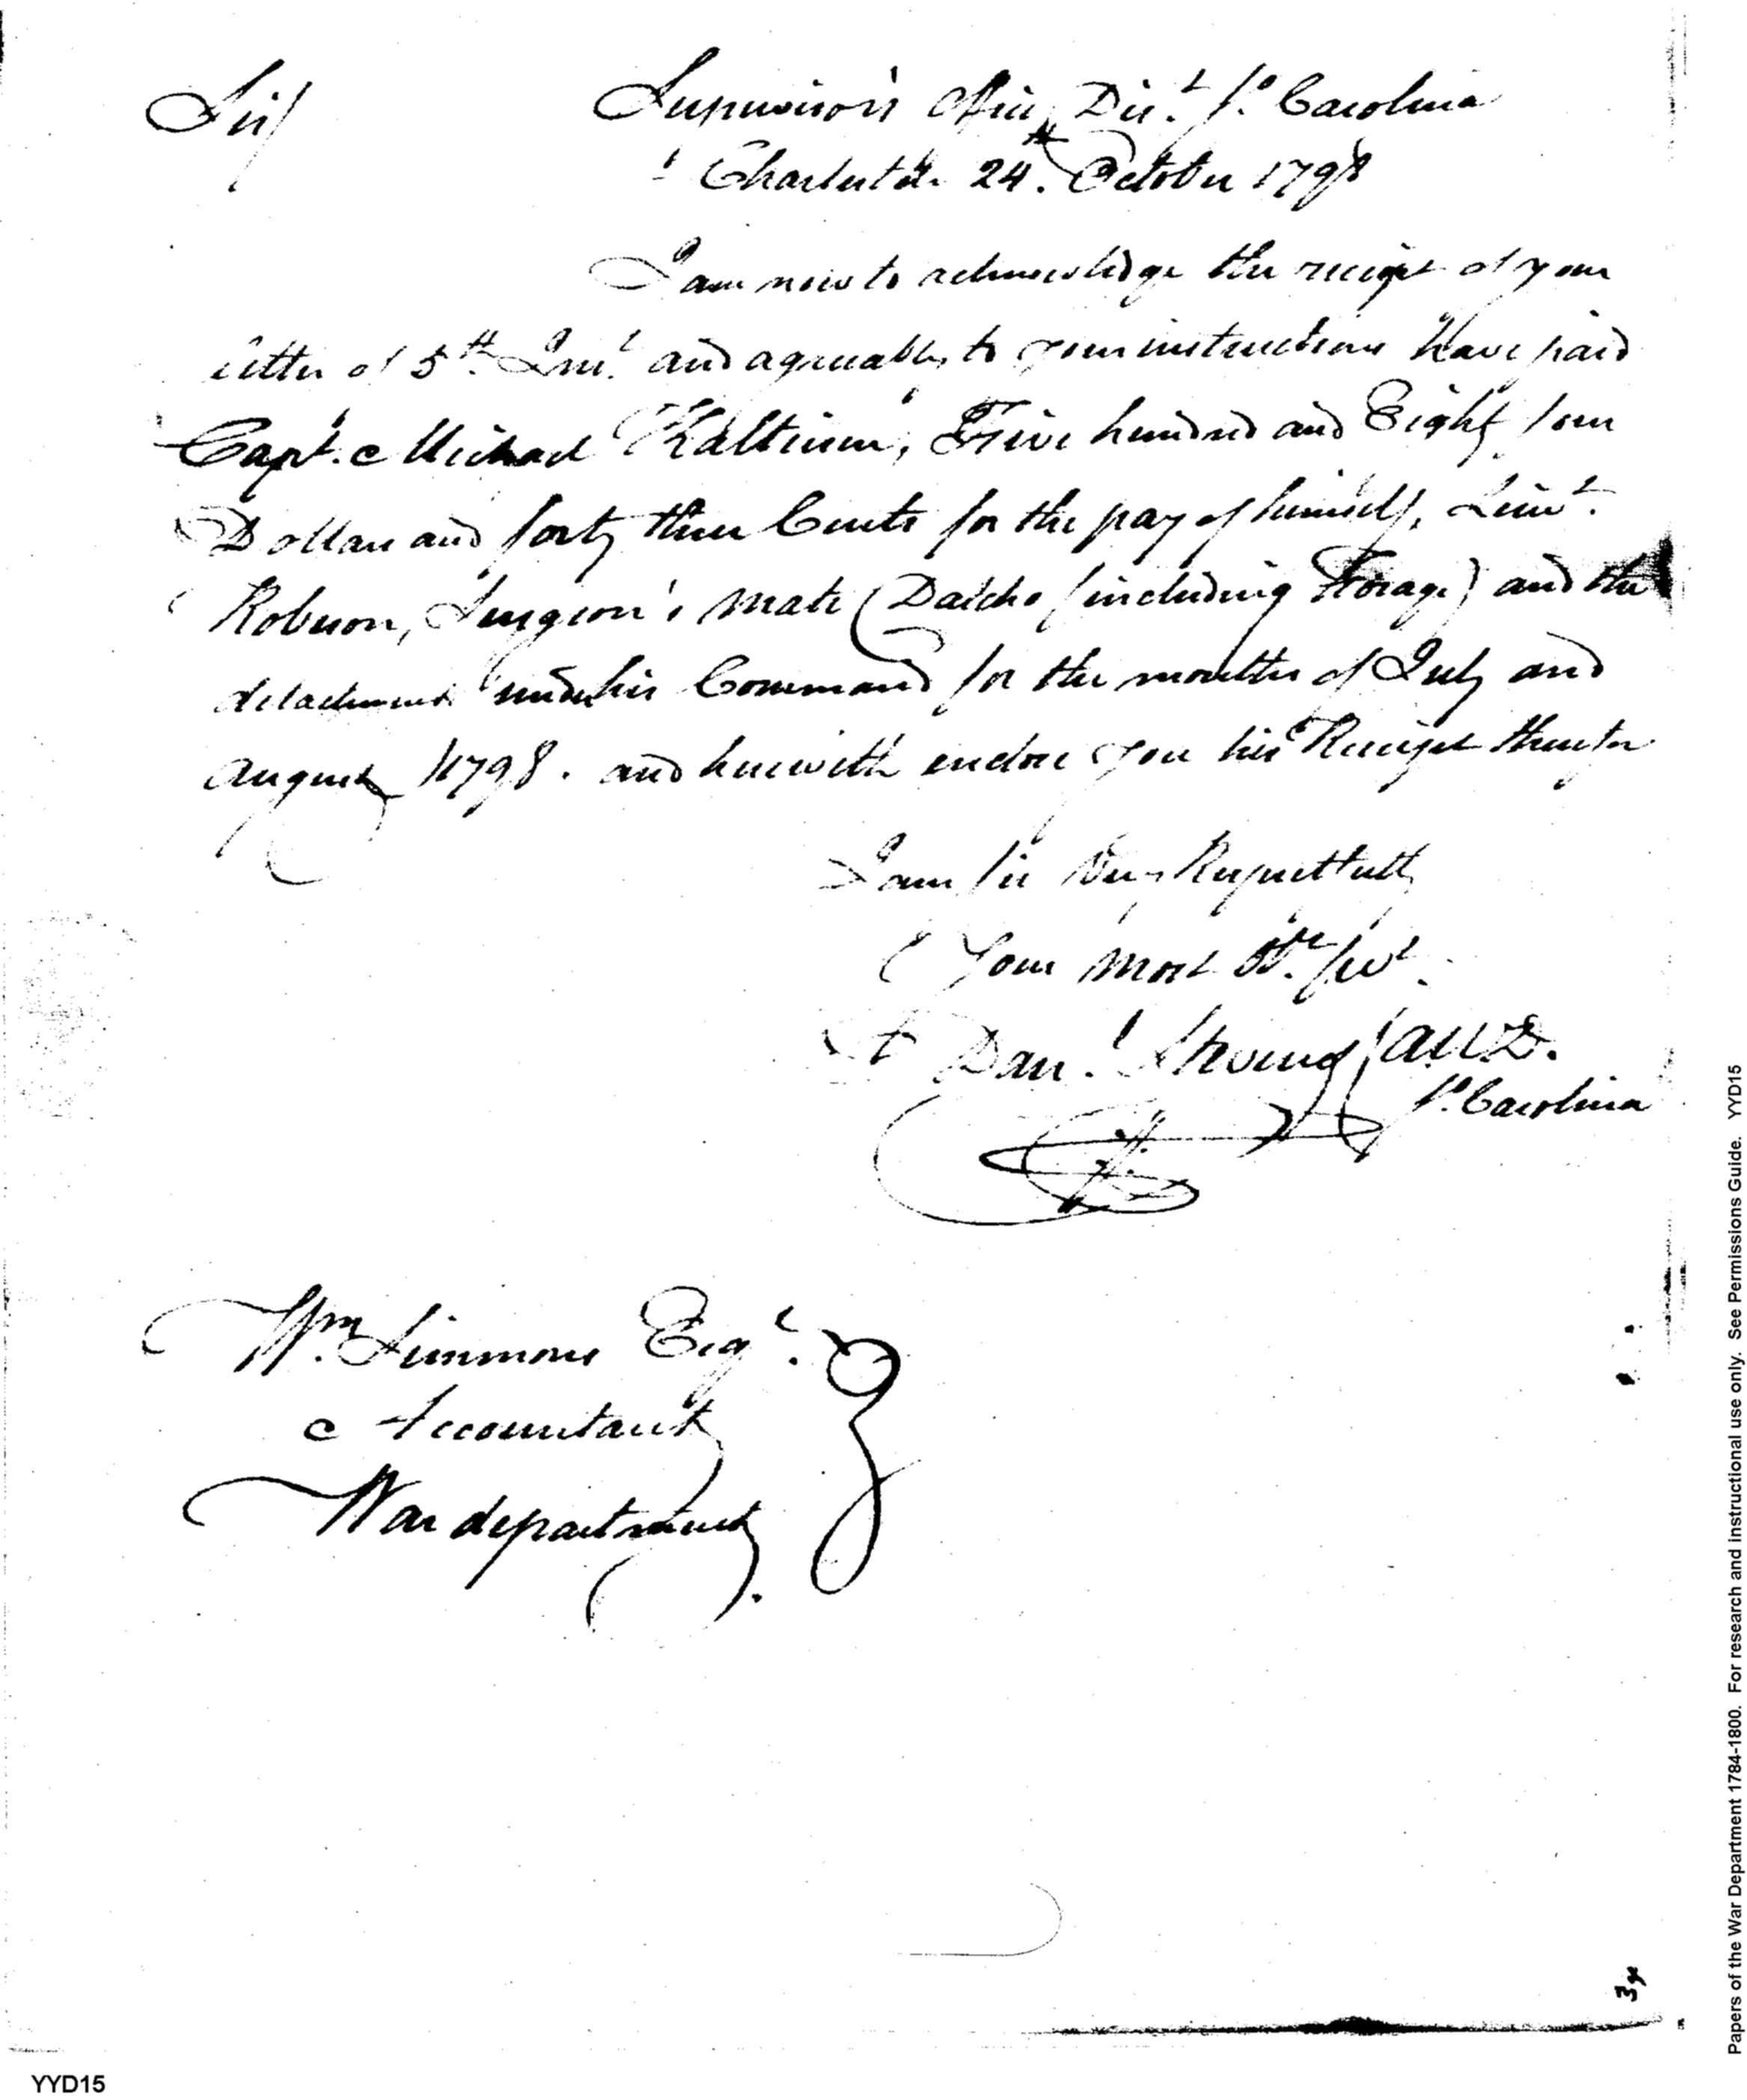 Sir/
Supervisor's Office, Dist. So. Carolina
Charleston 24th. October 1798
I am now to acknowledge the receipt of your
letter of 5th. Inst. and agreeably to your instructions have paid
Capt. Michael Kalteisen, Five hundred and Eighty four
Dollars and forty three Cents for the pay of himself, Lieut.
Robeson, Surgeon's Mate Dalcho (including Forage) and the
detachment under his Command for the months of July and
August 1798. and herewith enclose you his Receipt therefor
I am Sir Very Respectfully
Your Most Obt. Servt.
Danl. Stevens
So. Carolina
Wm. Simmons Esqr.
Accountant
War department.
34
YYD15
Papers of the War Department 1784-1800. For research and instructional use only. See Permissions Guide. YYD15